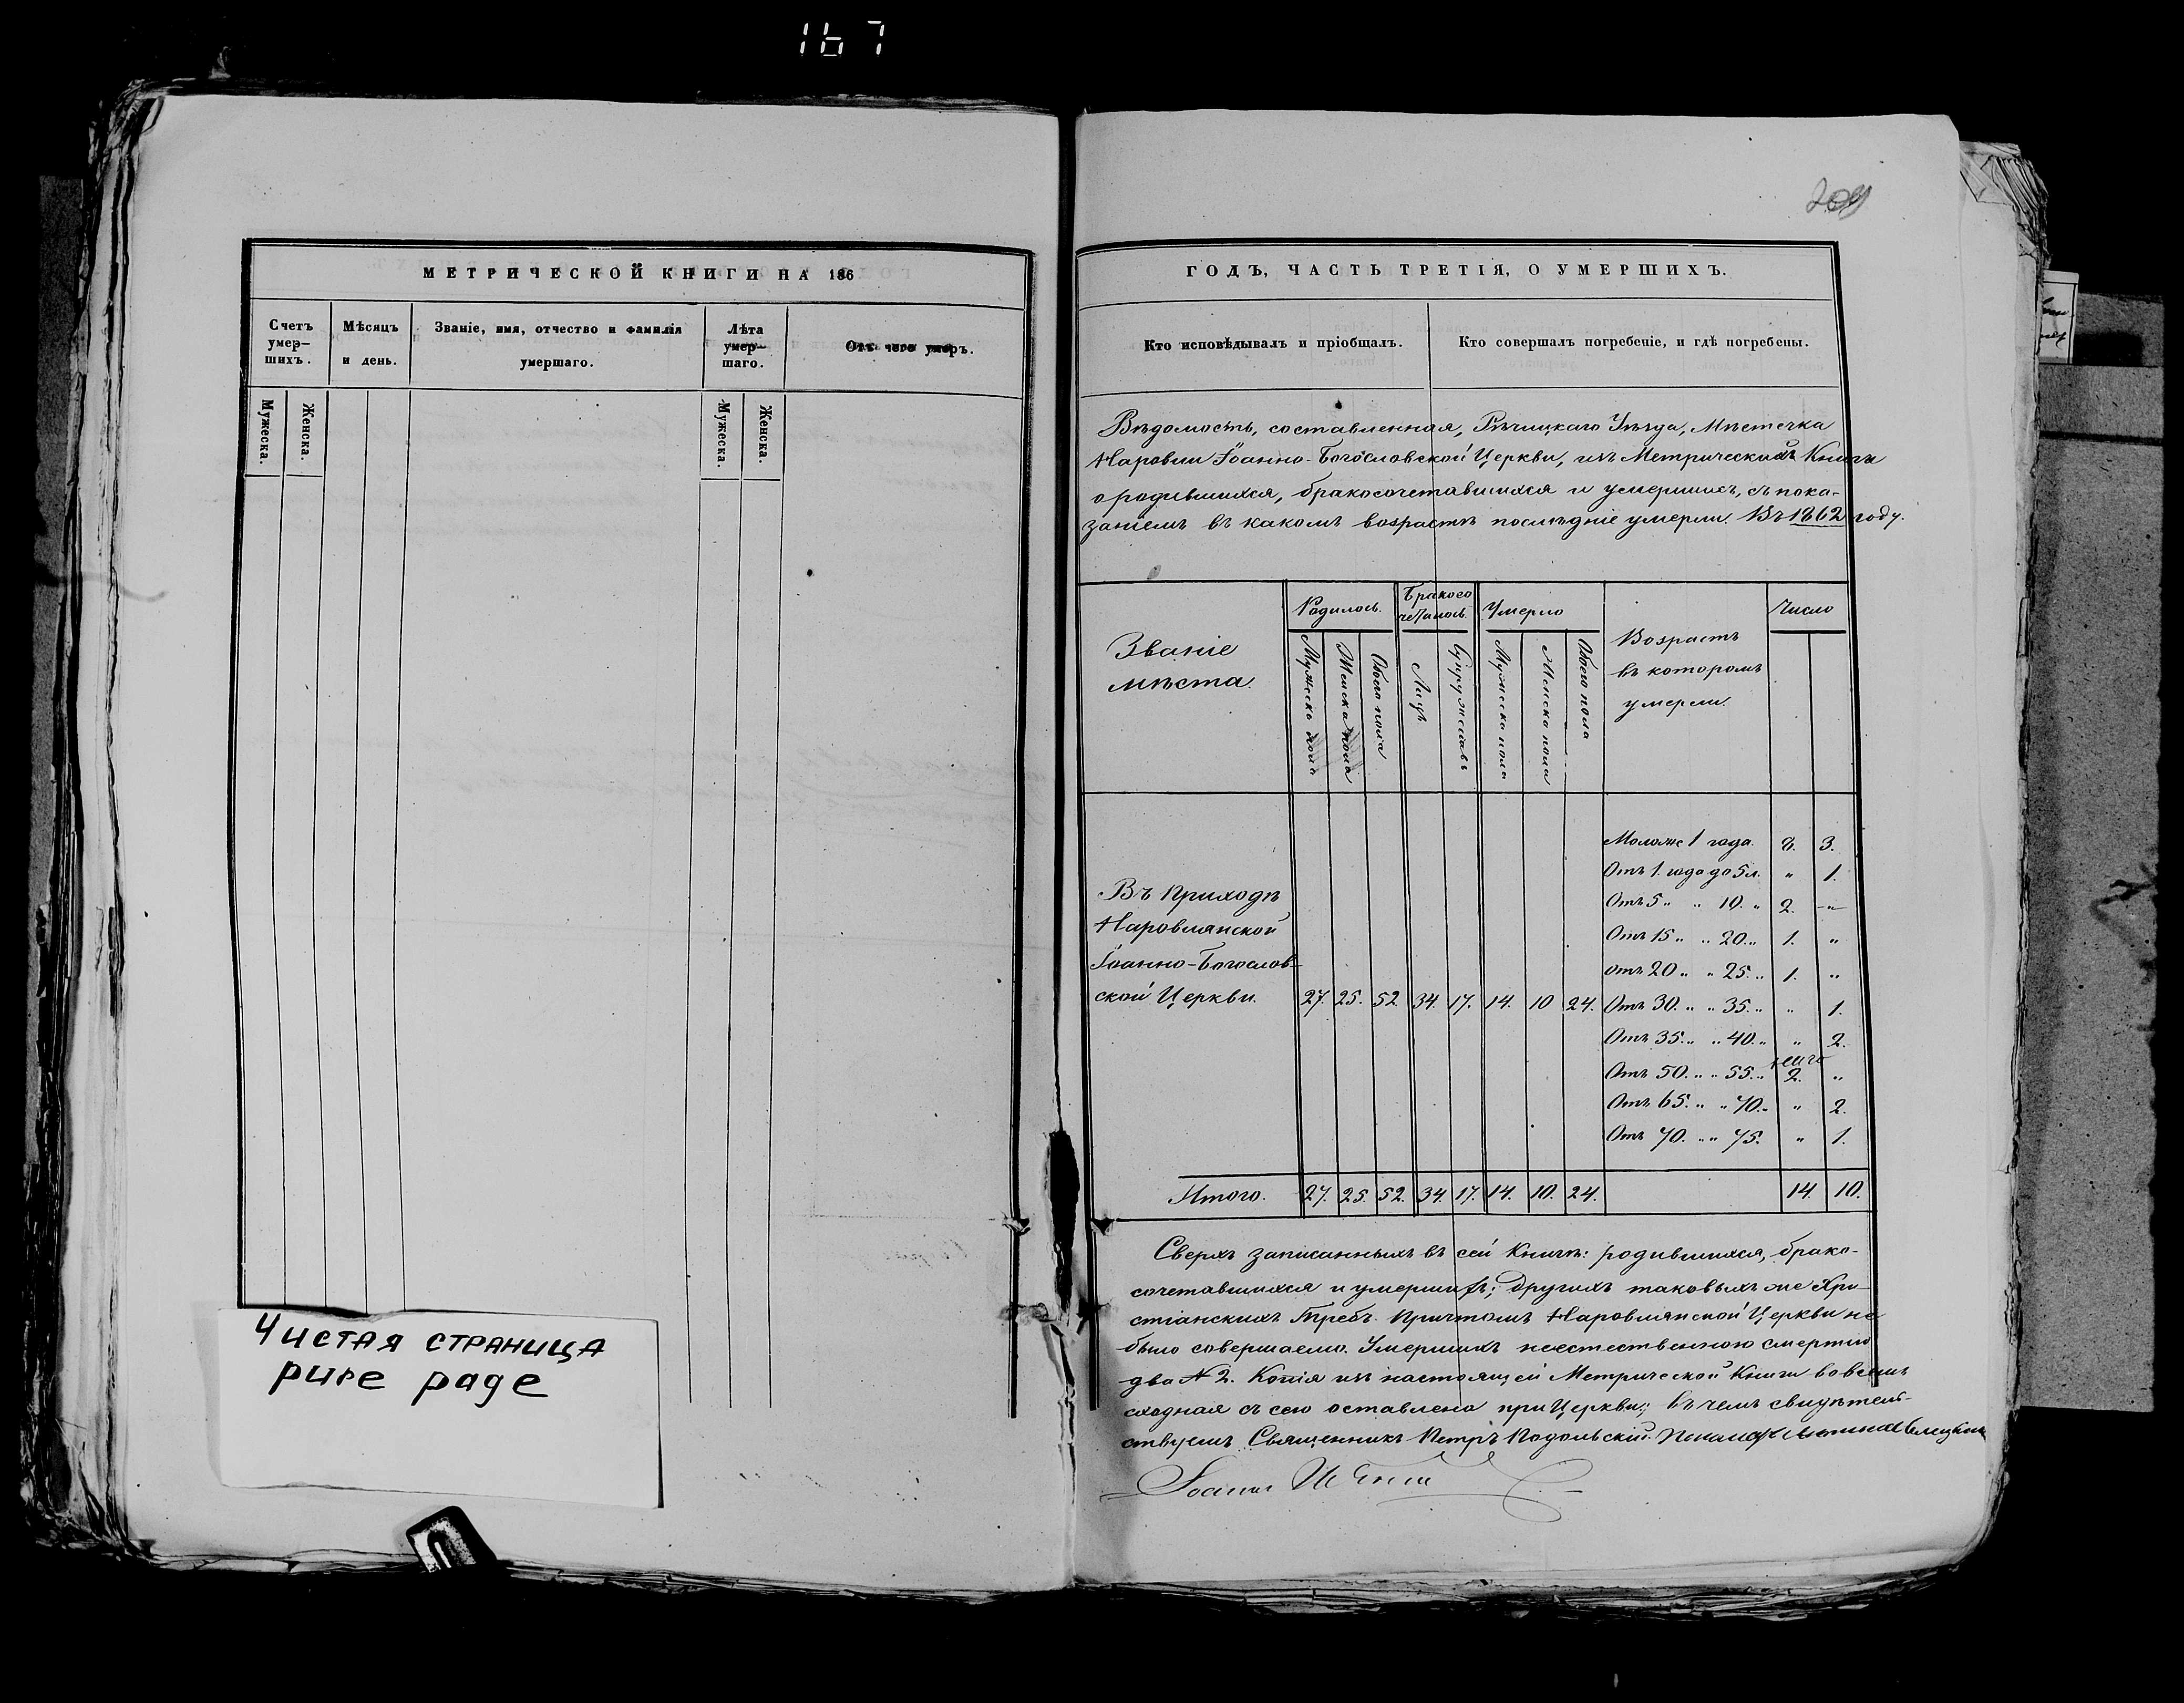 167
209
МЕТРИЧЕСКОЙ КНИГИ НА 186
Счетъ умер-шихъ.
Мѣсяцъ и день.
Званіе, имя, отчество и фамилія умершаго.
Лѣта умер-шаго.
Отъ чего умеръ.
Мужеска.
Женска.
Мужеска.
Женска.
Чистая страница
pure page
ГОДЪ, ЧАСТЬ ТРЕТІЯ, О УМЕРШИХЪ.
Кто исповѣдывалъ и пріобщалъ.
Кто совершалъ погребеніе, и гдѣ погребены.
Вѣдомость, составленная, Рѣчицкаго Уѣзда, Мѣстечка
Наровли Іоанно-Богословской Церкви, изъ Метрическихъ Книгъ
о родившихся, бракосочетавшихся и умершихъ, съ пока-
заніемъ въ какомъ возрастѣ послѣдніе умерли. Въ 1862 году.
Званіе мѣста.
Родилось.
Бракосо четалось.
Умерло
Возрастъ въ которомъ умерли.
Число
Мужеска пола
Женска пола
Обоего пола
Лицъ
Супружествъ
Мужеска пола
Женска пола
Обоего пола
Моложе 1 года. 8. 3.
Отъ 1. года до 5 л. „ 1.
Отъ 5 „ „ 10. „ 2. „
Отъ 15 „ „ 20. „ 1. „
Отъ 20 „ „ 25. „ 1. „
Въ Приходѣ
Наровлянской
Іоанно-Богослов-
ской Церкви. 27. 25. 52. 34. 17. 14. 10 24. Отъ 30. „ „ 35. „ „ 1.
Отъ 35. „ „ 40. „ „ 2.
Отъ 50. „ „ 55. „ 2. „
Отъ 65. „ „ 70. „ „ 2.
Отъ 70. „ „ 75. „ 1.
Итого. 27. 25. 52. 34. 17. 14. 10. 24. 14. 10.
Сверхъ записанныхъ въ сей Книгѣ: родившихся, брако-
сочетавшихся и умершихъ; другихъ таковыхъ же Хри-
стіанскихъ Требъ Причтомъ Наровлянской Церкви не
было совершаемо. Умершихъ неестественною смертію
два № 2. Копія изъ настоящей Метрической Книги во всемъ
сходная съ сею оставлена при Церкви; въ чемъ свидѣтель-
ствуемъ Священникъ Петръ Подольскій.
Іоаннъ